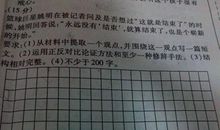 戒心。
(15分)
篮球巨星姚明在被记者问及是否想过“这就是结束了”的
时候,姚明回答说:“永远没有‘结束’,就算结束了,也是个崭新
的开始。”
要求:(1)从材料中提取一个观点,并围绕这一观点写一篇短
文。(2)运用正反对比论证方法和至少一种修辞手法。(3)结
构相对完整。(4)不少于200字。